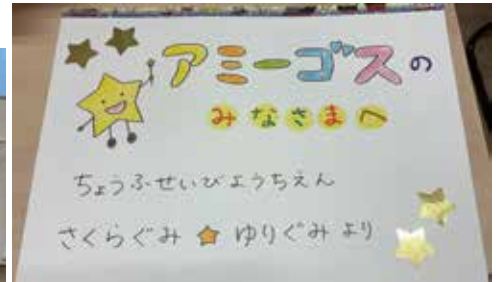 アミーゴスの
みなさまへ
ちょうふせいびようちえん
さくらぐみ ★ ゆりぐみ より